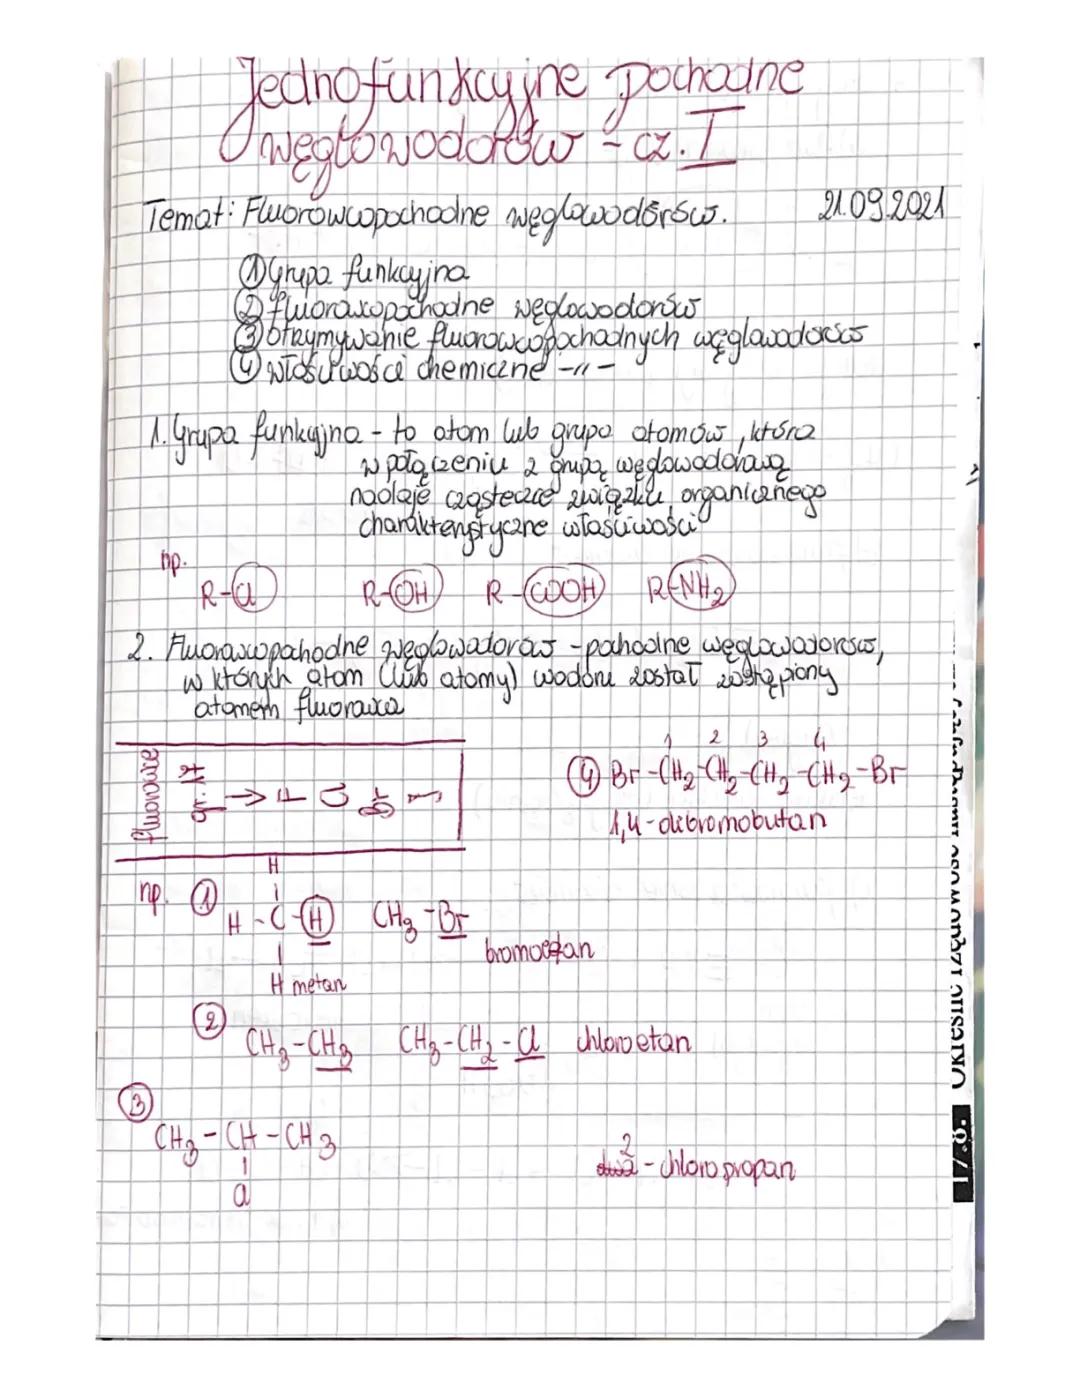 Jednofunkcyjne pochodne
węglowodorów - cz. I
Temat: Fluorowcopochodne węglowodorów. 21.09.2021
① Grupa funkcyjna
② fluorowcopochodne węglowodorów
③ otrzymywanie fluorowcopochodnych węglowodorów
④ właściwości chemiczne -〃-
1. Grupa funkcyjna - to atom lub grupa atomów, która
w połączeniu z grupą węglowodorową
nadaje cząsteczce związku organicznego
charakterystyczne właściwości
np.
R-Cl R-OH R-COOH R-NH₂
2. Fluorowcopochodne węglowodorów - pochodne węglowodorów,
w których atom (lub atomy) wodoru został zastąpiony
atomem fluorowca
fluorowce
gr. 17
→ F Cl Br I
1 2 3 4
④ Br-CH₂-CH₂-CH₂-CH₂-Br
1,4-dibromobutan
np. ①
H
H-C-H CH₃-Br
bromoetan
H metan
②
CH₃-CH₃ CH₃-CH₂-Cl chloroetan
③
CH₃-CH-CH₃
Cl
2-chloropropan